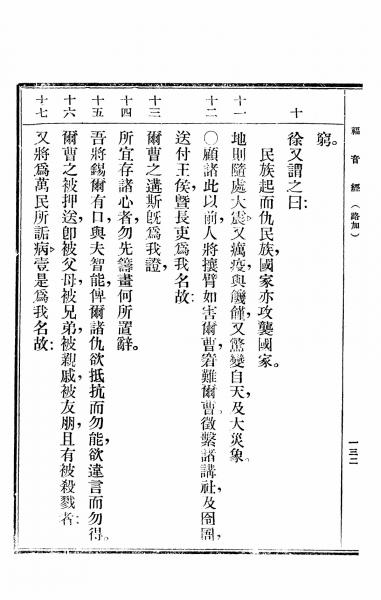 福音經（路加）
一三二
窮。
十 徐又謂之曰:
民族起而仇民族,國家亦攻襲國家。
十一 地則隨處大震,又癘疫與饑饉,又驚變自天,及大災象。
十二 ○顧諸此以前,人將攘臂如害爾曹,窘難爾曹,徵繫諸講社,及囹圄,
送付王侯,暨長吏,爲我名故:
十三 爾曹之遘斯,旣爲我證,
十四 所宜存諸心者,勿先籌畫何所置辭。
十五 吾將錫爾有口,與夫智能,俾爾諸仇,欲抵抗而勿能,欲違言而勿得。
十六 爾曹之被押送,卽被父母,被兄弟,被親戚,被友朋,且有被殺戮者:
十七 又將爲萬民所詬病,壹是爲我名故: